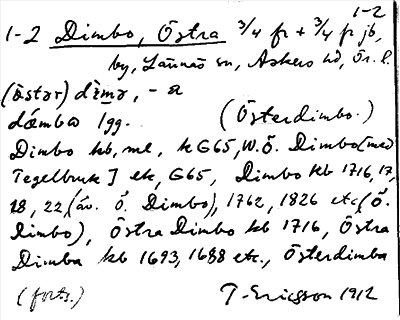 1-2
1-2 Dimbo, Östra 3/4 fr + 3/4 fr jb,
by, Lännäs sn, Askers hd, Ör. l.
(östər) dìmə, - a
dǽmba lgg. (Österdimbo.)
Dimbo kb, ml, k G65, W.Ö. Dimbo [med
Tegelbruk] ek, G65, Dimbo kb 1716, 17,
18, 22, (äv. Ö. Dimbo), 1762, 1826 etc, (Ö.
Dimbo), Östra Dimbo kb 1716, Östra
Dimba kb 1693, 1688 etc., Österdimba
(forts.) T. Ericsson 1912